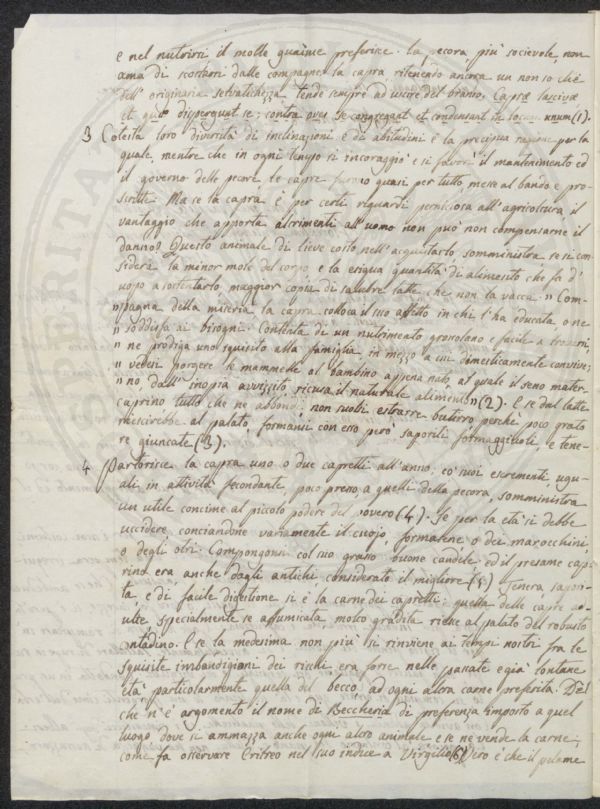 e nel nutrirsi il molle guaime preferisce. La pecora più socievole, non
ama di scostarsi dalle compagne la capra ritenendo ancora un non so chè
dell' originaria selvatichezza tende sempre ad uscire del branco. Capræ lascivæ
et dispergunt se; contra oves se congregant et condensant in locum unum (1).
3 Cotesta loro diversità di inclinazioni e di abitudini è la precipua ragione per la
quale, mentre che in ogni tempo si incoraggiò e si favorì il mantenimento ed
il governo delle pecore, le capre furono quasi per tutto messe al bando e pro-
scritte. Ma se la capra è per certi riguardi perniciosa all' agricoltura, il
vantaggio che apporta altrimenti all' uomo non può non compensarne il
danno? Questo animale di lieve costo nell' acquistarlo somministra, se si con
sideri la minor mole del corpo, e la esigua quantità di alimento che fa d'
uopo a sostentarlo maggior copia di salubre latte che non la vacca. " Com-
" pagna della miseria la capra colloca il suo affetto in chi l' ha educata, o ne
" soddisfa ai bisogni. Contenta di un nutrimento grossolano e facile a trovarsi,
" ne prodiga uno squisito alla famiglia in mezzo a cui dimesticamente convive;
" vedesi porgere le mammelle al bambino appena nato, al quale il seno mater
" no, dall' inopia avvizzito, ricusa il naturale alimento " (2). E se dal latte
caprino tutto che ne abbondi, non suolsi estrarre butirro perchè poco grato
riescirebbe al palato, formansi con esso però saporiti formaggiuoli, e tene-
re giuncate (3).
4 Partorisce la capra uno o due capretti all' anno, co' suoi escrementi ugu-
ali in attività fecondante, poco preno, a quelli della pecora, somministra
un utile concime al piccolo podere del povero (4). Se per la età si debbe
uccidere conciandone variamente il cuojo, formansene o dei marocchini,
o degli otri. Compongonsi col suo grasso buone candele, ed il presame cap-
rino era anche dagli antichi considerato il migliore (5) Tenera, sapori-
ta, e di facile digestione si è la carne dei capretti: quella delle capre ad-
ulte, specialmente se affumicata, molto gradita riesce al palato del robusto
contadino. E se la medesima non più si rinviene ai tempi nostri fra le
squisite imbandigioni dei ricchi era forse nelle passate e già lontane
età particolarmente quella del becco, ad ogni altra carne preferita. Del
che n' è argomento il nome di Beccheria di preferenza imposto a quel
luogo dove si ammazza anche ogni altro animale e se ne vende la carne,
come fa osservare Eritreo nel suo indice a Virgilio (6) Vero è che il pelame